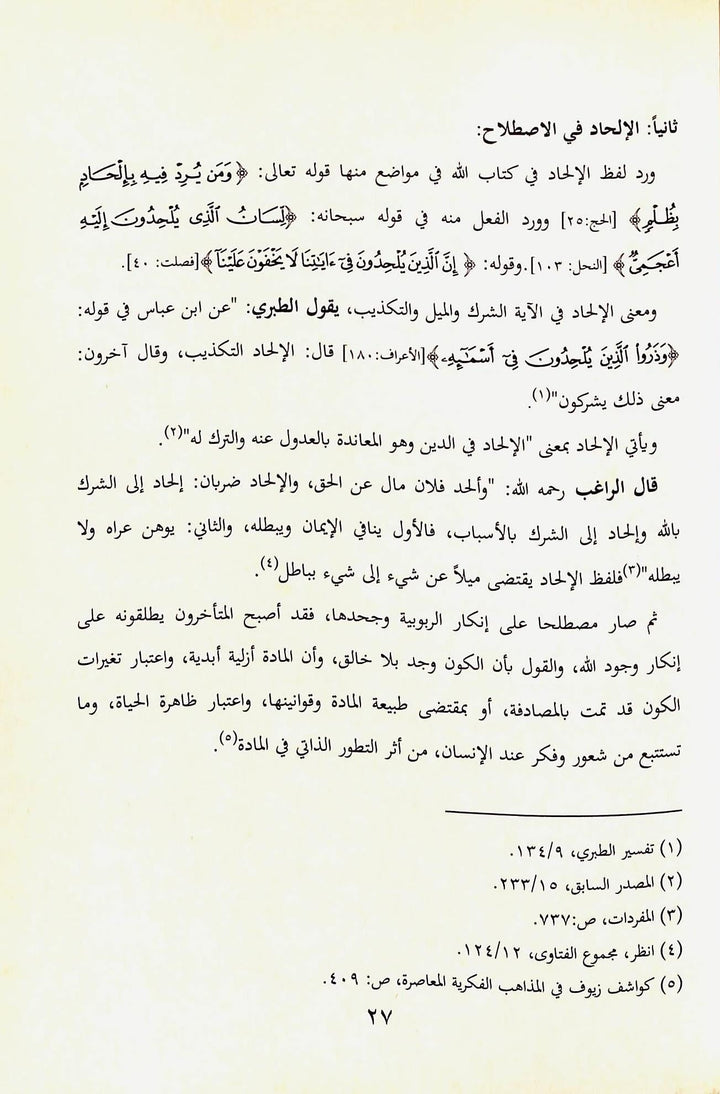 ثانياً: الإلحاد في الاصطلاح:
ورد لفظ الإلحاد في كتاب الله في مواضع منها قوله تعالى: ﴿وَمَن يُرِدْ فِيهِ بِإِلْحَادٍ
بِظُلْمٍ﴾ [الحج:٢٥] وورد الفعل منه في قوله سبحانه: ﴿لِسَانُ ٱلَّذِى يُلْحِدُونَ إِلَيْهِ
أَعْجَمِىٌّ﴾ [النحل: ١٠٣].وقوله: ﴿إِنَّ ٱلَّذِينَ يُلْحِدُونَ فِىٓ ءَايَٰتِنَا لَا يَخْفَوْنَ عَلَيْنَآ﴾[فصلت: ٤٠].
ومعنى الإلحاد في الآية الشرك والميل والتكذيب، يقول الطبري: "عن ابن عباس في قوله:
﴿وَذَرُوا۟ ٱلَّذِينَ يُلْحِدُونَ فِىٓ أَسْمَٰٓئِهِۦ﴾[الأعراف:١٨٠] قال: الإلحاد التكذيب، وقال آخرون:
معنى ذلك يشركون"(١).
ويأتي الإلحاد بمعنى "الإلحاد في الدين وهو المعاندة بالعدول عنه والترك له"(٢).
قال الراغب رحمه الله: "وألحد فلان مال عن الحق، والإلحاد ضربان: إلحاد إلى الشرك
بالله وإلحاد إلى الشرك بالأسباب، فالأول ينافي الإيمان ويبطله، والثاني: يوهن عراه ولا
يبطله"(٣)فلفظ الإلحاد يقتضى ميلاً عن شيء إلى شيء بباطل(٤).
ثم صار مصطلحا على إنكار الربوبية وجحدها، فقد أصبح المتأخرون يطلقونه على
إنكار وجود الله، والقول بأن الكون وجد بلا خالق، وأن المادة أزلية أبدية، واعتبار تغيرات
الكون قد تمت بالمصادفة، أو بمقتضى طبيعة المادة وقوانينها، واعتبار ظاهرة الحياة، وما
تستتبع من شعور وفكر عند الإنسان، من أثر التطور الذاتي في المادة(٥).
(١) تفسير الطبري، ١٣٤/٩.
(٢) المصدر السابق، ٢٣٣/١٥.
(٣) المفردات، ص:٧٣٧.
(٤) انظر، مجموع الفتاوى، ١٢٤/١٢.
(٥) كواشف زيوف في المذاهب الفكرية المعاصرة، ص: ٤٠٩.
٢٧